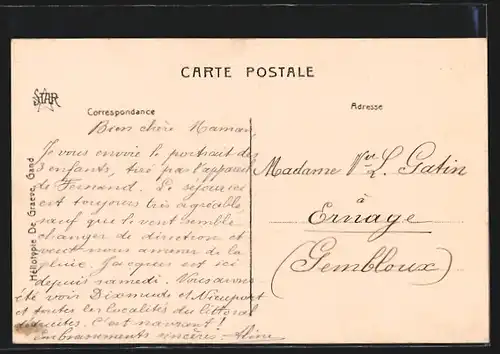 CARTE POSTALE
STAR
Correspondance
Adresse
Héliotypie De Graeve, Gand
Bien chère Maman,
Je vous envoie le portrait des
3 enfants, tiré par l'appareil
de Fernand. Le séjour ici
est toujours très agréable
sauf que le vent semble
changer de direction et
veut nous amener de la
pluie. Jacques est ici
depuis samedi. Nous avons
été voir Dixmude et Nieuport
et toutes les localités du littoral
détruites. C'est navrant!
Embrassements sincères. Aline
Madame Vve L. Gatin
à
Ernage
(Gembloux)